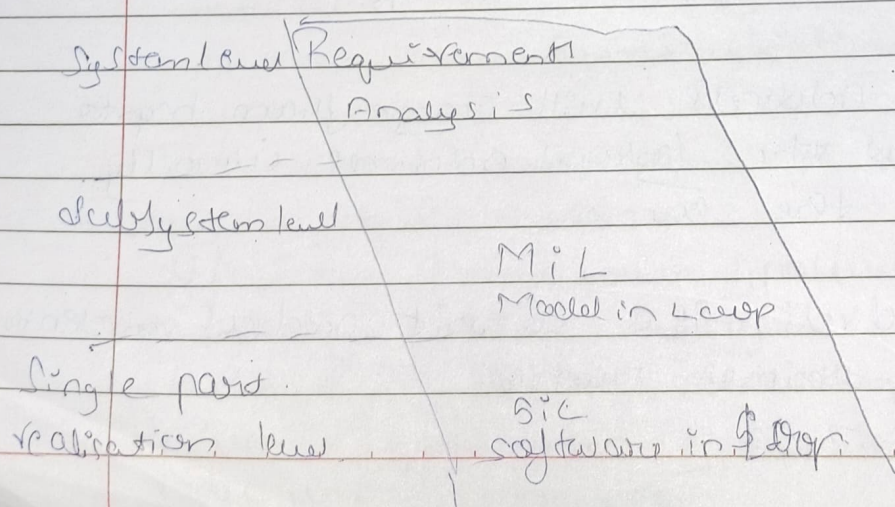 System level Requirement
Analysis
Subsystem level
MiL
Model in Loop
Single part
realisation level
SiL
software in